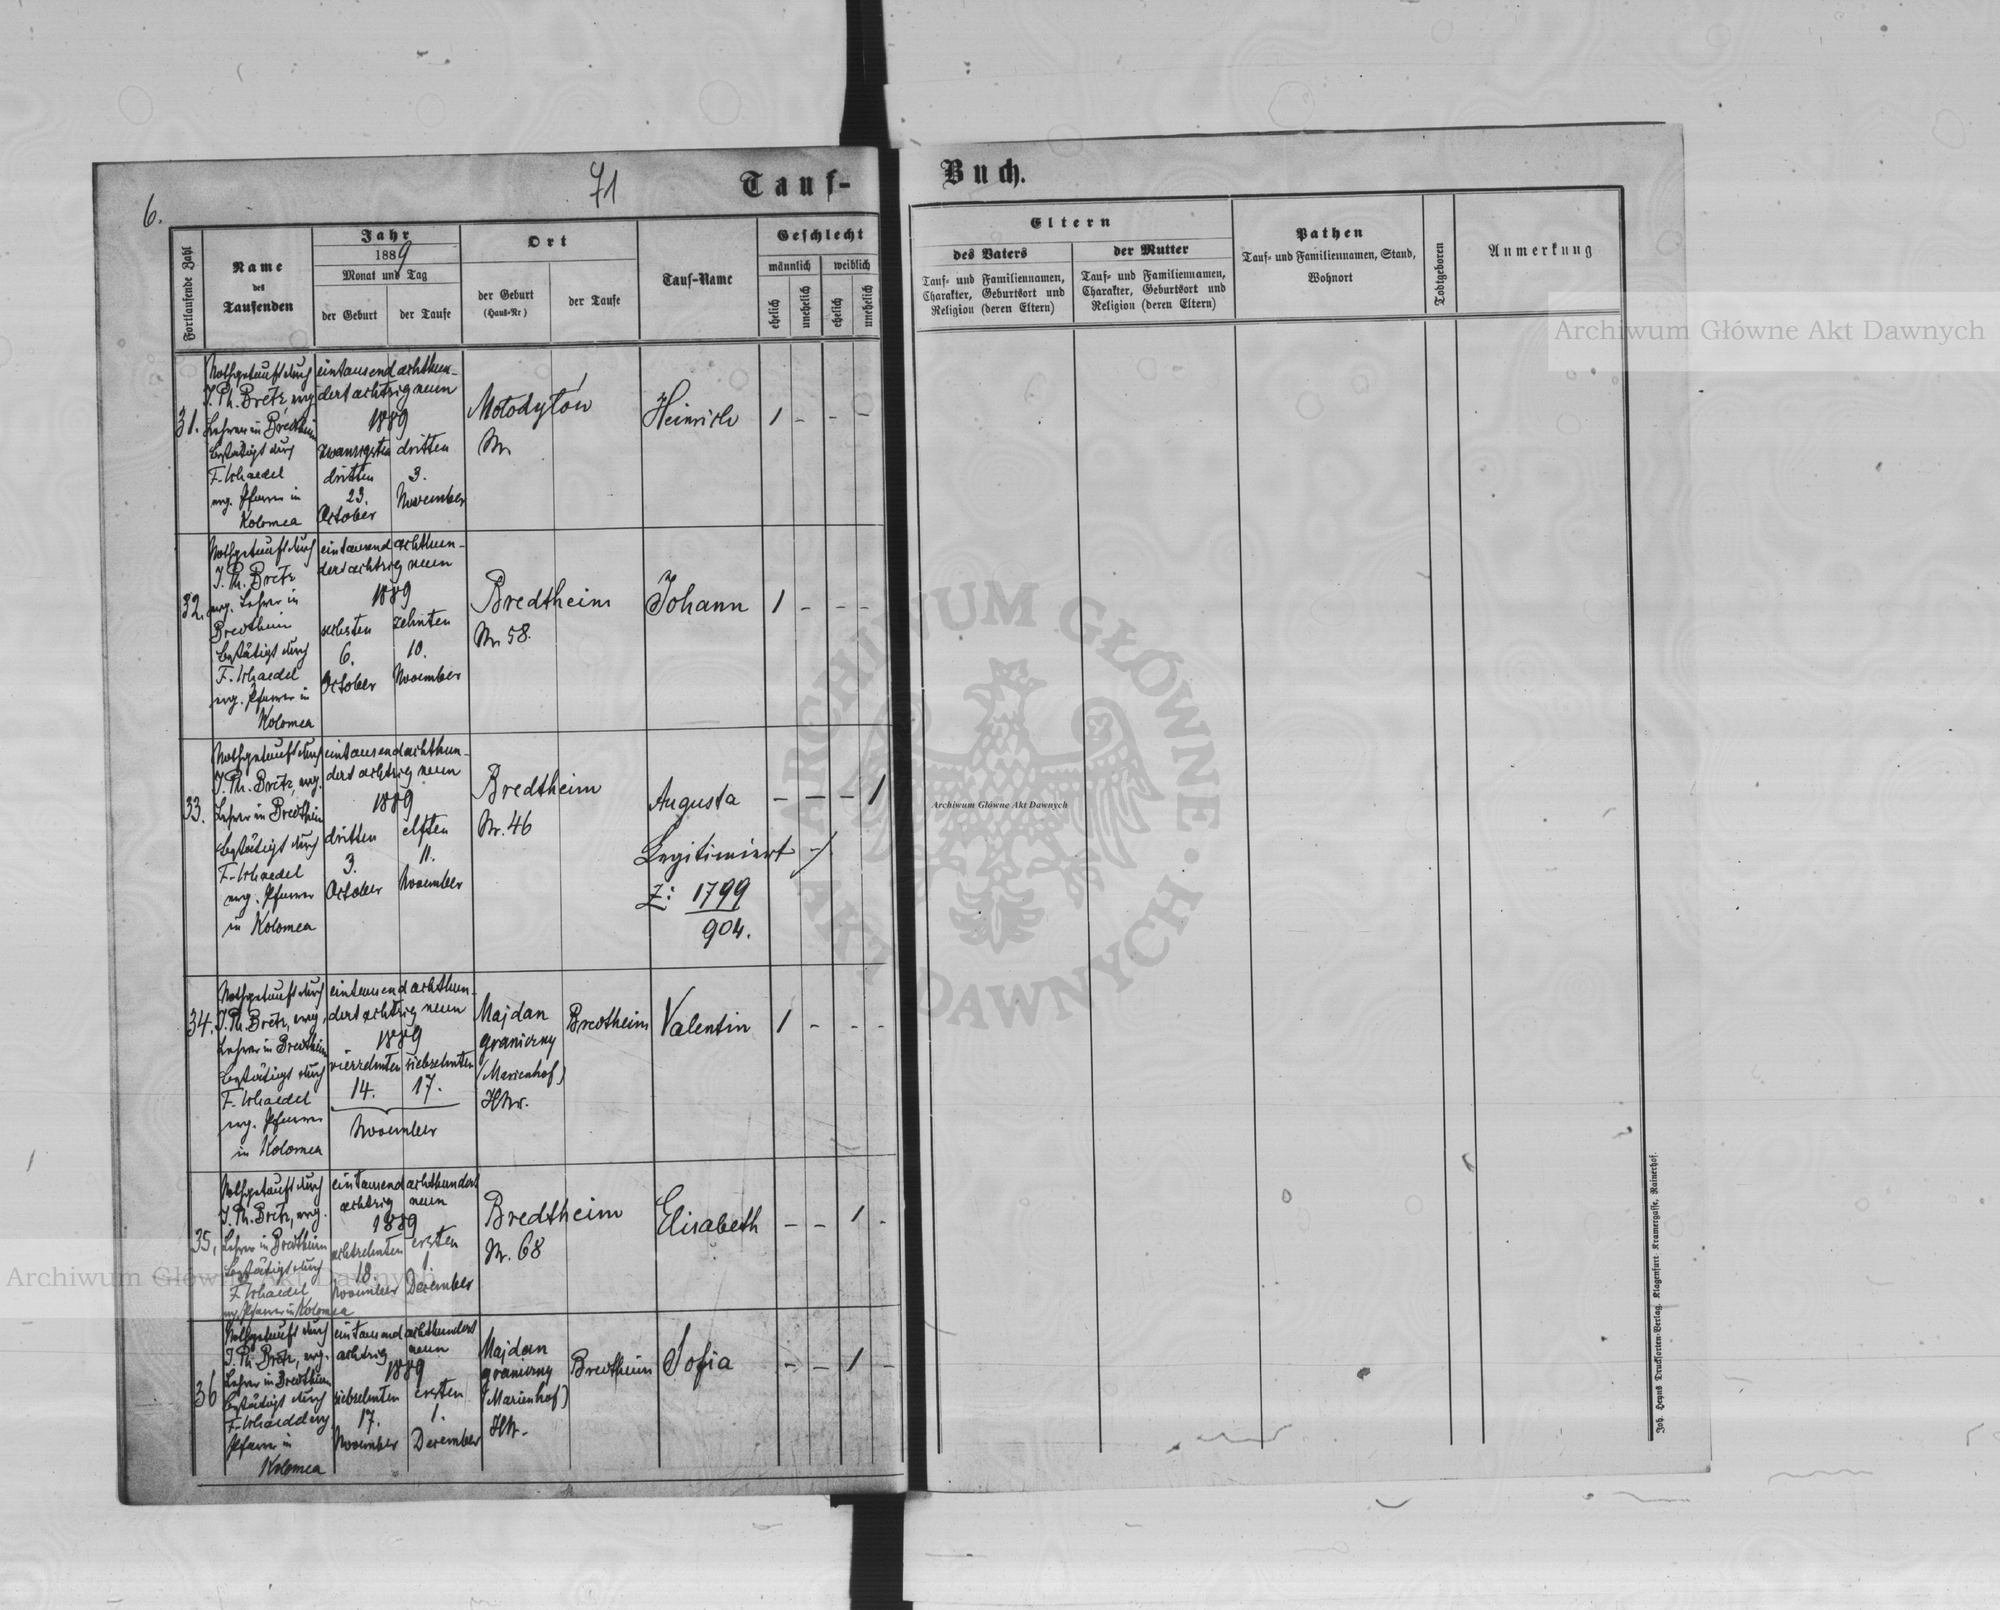 6.
71
Tauf-
Buch.
Fortlaufende Zahl
Name
des
Taufenden
Jahr
1889
Monat und Tag
der Geburt
der Taufe
Ort
der Geburt
(Haus-Nr)
der Taufe
Tauf-Name
Geschlecht
männlich
weiblich
ehelich
unehelich
ehelich
unehelich
Eltern
des Vaters
Tauf- und Familiennamen,
Charakter, Geburtsort und
Religion (deren Eltern)
der Mutter
Tauf- und Familiennamen,
Charakter, Geburtsort und
Religion (deren Eltern)
Pathen
Tauf- und Familiennamen, Stand,
Wohnort
Todtgeboren
Anmerkung
31.
Nothgetauft durch
J. Ph. Bretz, evg.
Lehrer in Bredtheim
bestätigt durch
F. Schaedel
evg. Pfarrer in
Kolomea
eintausend achthun-
dert achtzig neun
1889
zwanzigsten
dritten
23.
October
dritten
3.
November
Mołodyłów
Nr.
Heinrich
1 - - -
32.
Nothgetauft durch
J. Ph. Bretz
evg. Lehrer in
Bredtheim
bestätigt durch
F. Schaedel
evg. Pfarrer in
Kolomea
eintausend achthun-
dert achtzig neun
1889
sechsten
6.
October
zehnten
10.
November
Bredtheim
Nr. 58.
Johann
1 - - -
33.
Nothgetauft durch
J. Ph. Bretz, evg.
Lehrer in Bredtheim
bestätigt durch
F. Schaedel
evg. Pfarrer
in Kolomea
eintausend achthun-
dert achtzig neun
1889
dritten
3.
October
elften
11.
November
Bredtheim
Nr. 46
Augusta
- - - 1
Legitimiert
Z: 1799
904.
34.
Nothgetauft durch
J. Ph. Bretz, evg.
Lehrer in Bredtheim
bestätigt durch
F. Schaedel
evg. Pfarrer
in Kolomea
eintausend achthun-
dert achtzig neun
1889
vierzehnten
14.
siebzehnten
17.
November
Majdan
graniczny
(Marienhof)
HNr.
Bredtheim
Valentin
1 - - -
35.
Nothgetauft durch
J. Ph. Bretz, evg.
Lehrer in Bredtheim
bestätigt durch
F. Schaedel
evg. Pfarrer in Kolomea
eintausend achthundert
achtzig neun
1889
achtzehnten
18.
November
ersten
1.
December
Bredtheim
Nr. 68
Elisabeth
- - 1 -
36
Nothgetauft durch
J. Ph. Bretz, evg.
Lehrer in Bredtheim
bestätigt durch
F. Schaedel evg.
Pfarrer in
Kolomea
eintausend achthundert
achtzig neun
1889
siebzehnten
17.
November
ersten
1.
December
Majdan
graniczny
(Marienhof)
HNr.
Bredtheim
Sofia
- - 1 -
Joh. Heyns Drucksorten-Verlag, Klagenfurt, Kramergasse, Rainerhof.
Archiwum Główne Akt Dawnych
ARCHIWUM GŁÓWNE AKT DAWNYCH
Archiwum Główne Akt Dawnych
Archiwum Główne Akt Dawnych